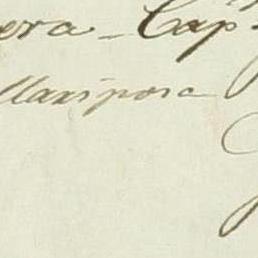 era - Cap
Mariposa